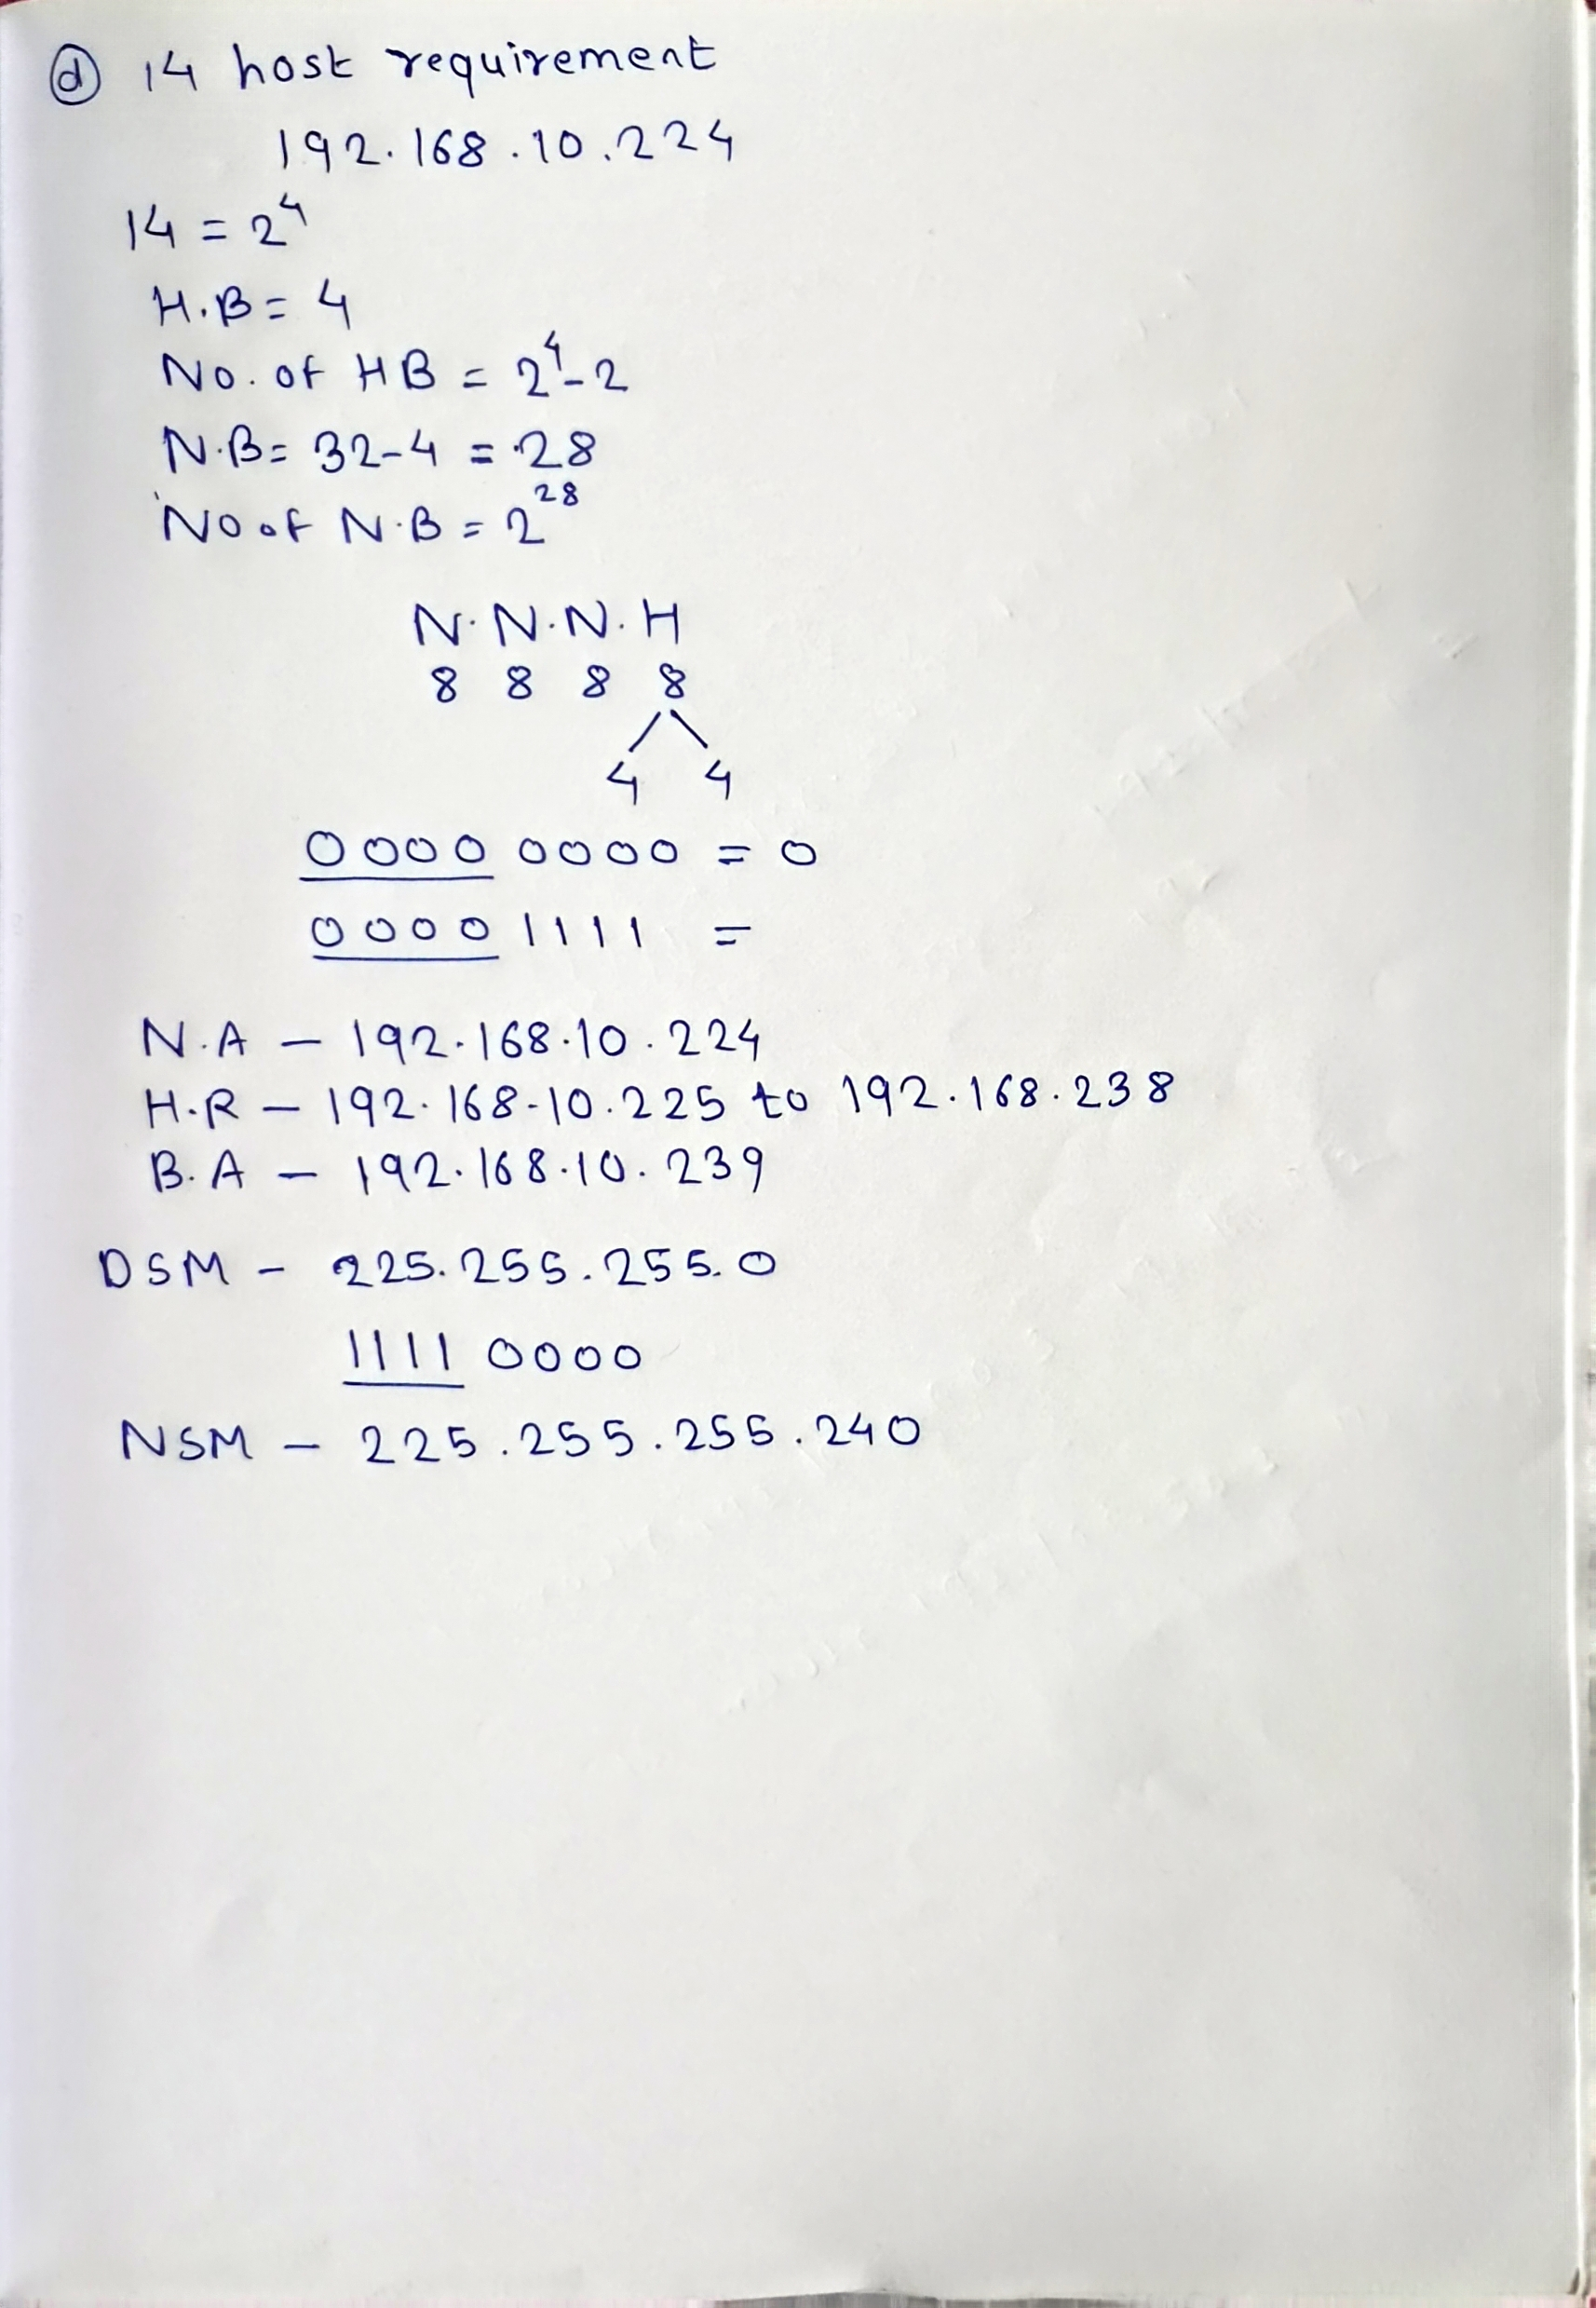 ⓓ 14 host requirement
192.168.10.224
14 = 2⁴
H.B = 4
No. of HB = 2⁴-2
N.B = 32-4 = 28
No of N.B = 2²⁸
N.N.N.H
8 8 8 8
4 4
0000 0000 = 0
0000 1111 =
N.A — 192.168.10.224
H.R — 192.168.10.225 to 192.168.238
B.A — 192.168.10.239
DSM - 225.255.255.0
1111 0000
NSM — 225.255.255.240